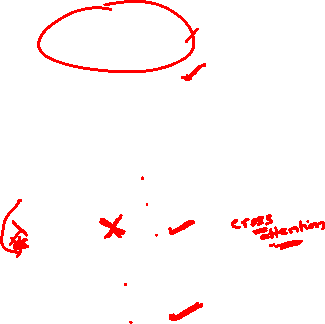 cross
attention